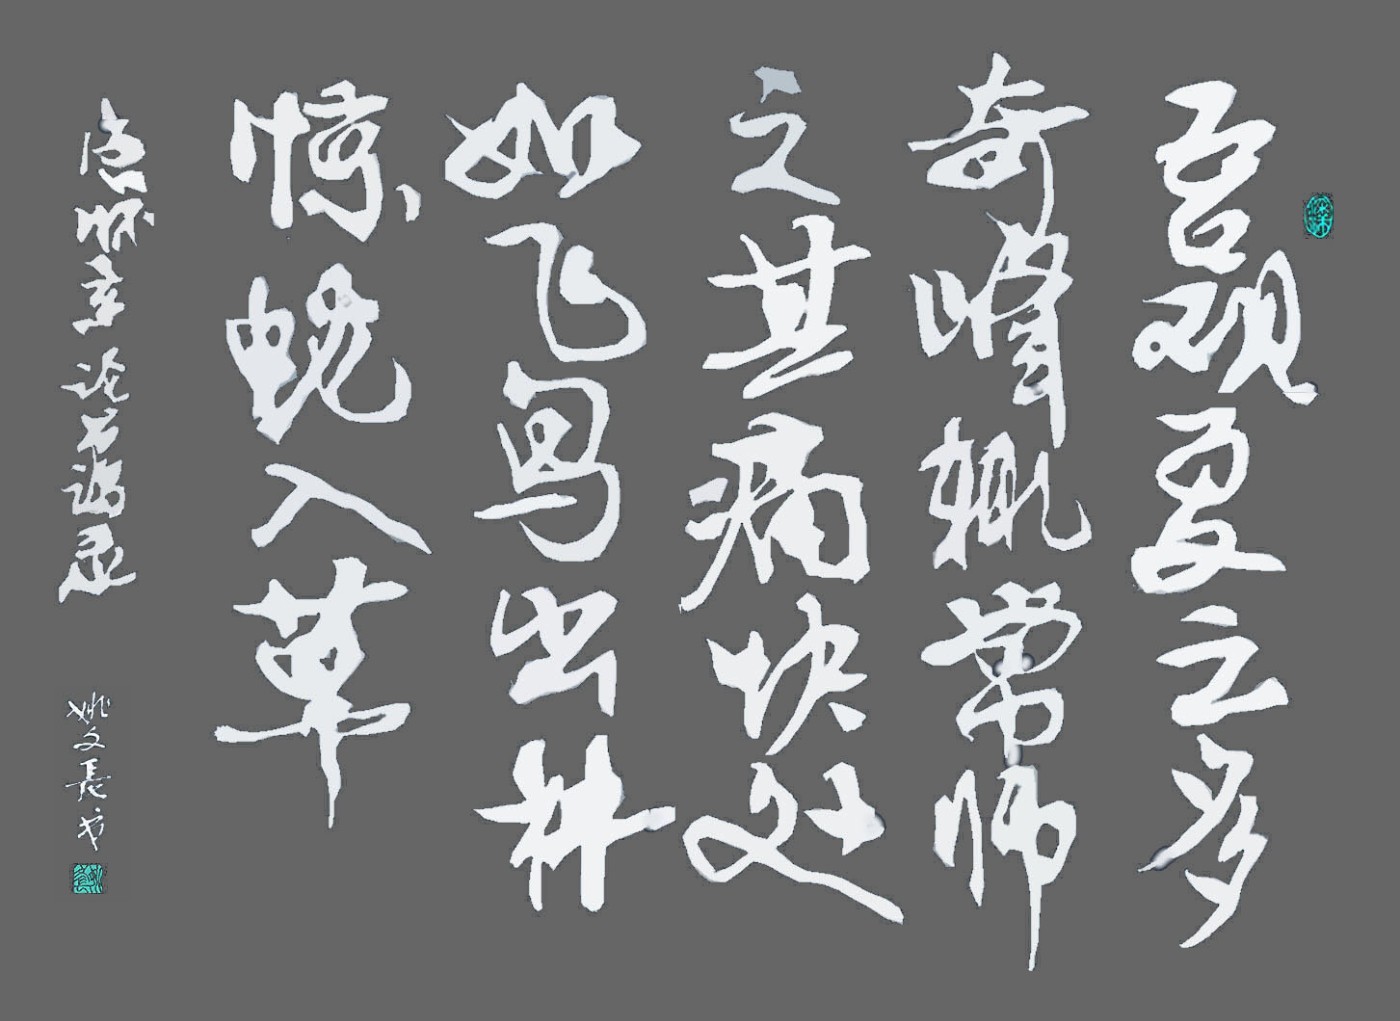 吾观夏云多
奇峰辄常师
之其痛快处
如飞鸟出林
惊蛇入草
唐怀素论书语录
姚文長书